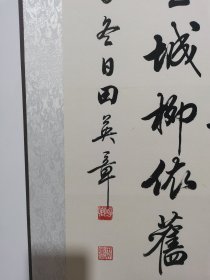 城柳依舊
冬日田英章